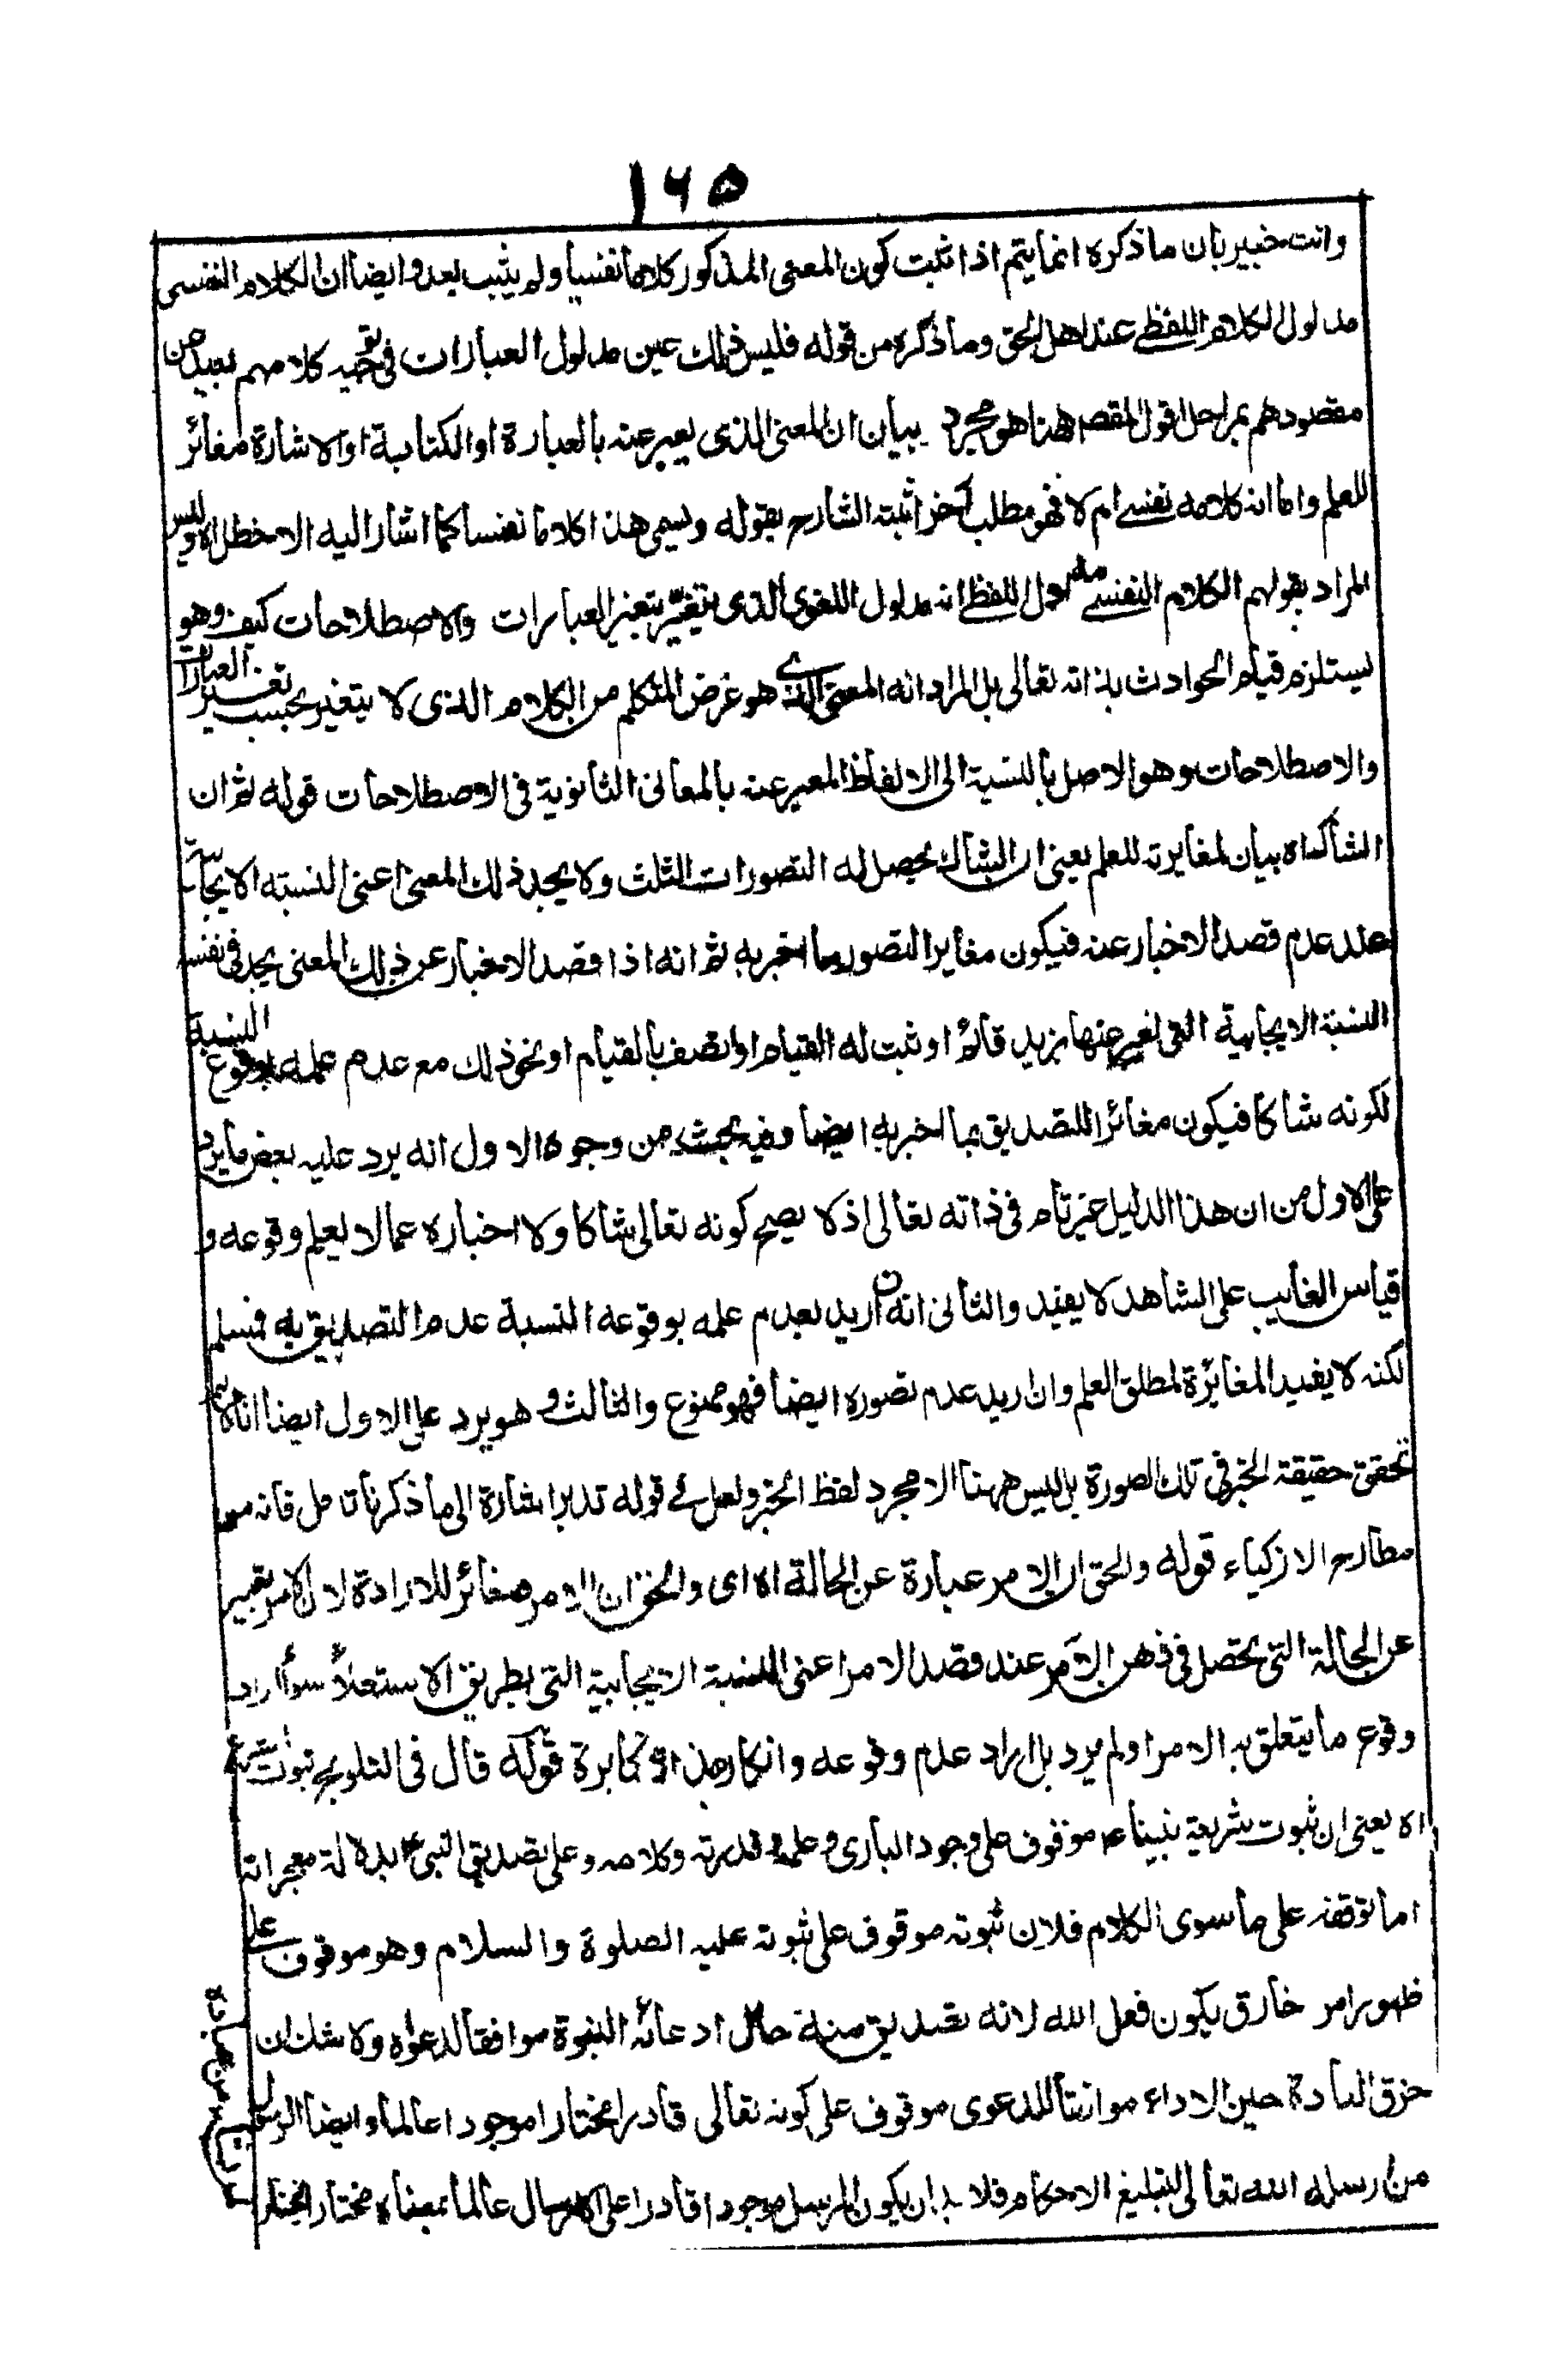 ۱۶۵
وانت خبير بان ما ذكره انما يتم اذا ثبت كون المعنى المذكور كلاما نفسيا ولم يثبت بعد وايضا ان الكلام النفسى
مدلول الكلام اللفظى عند اهل الحق وما ذكره من قوله فليس ذلك عين مدلول العبارات فى توجيه كلامهم بعيد من
مقصودهم بمراحل اقول المقصـ ههنا هو مجرد بيان ان المعنى الذى يعبر عنه بالعبارة او الكتابة او الاشارة مغائر
للعلم واما انه كلامه نفسى ام لا فهو مطلب آخر اثبته الشارح بقوله ويسمى هذا كلاما نفسيا كما اشار اليه الاخطل اه وليس
المراد بقولهم الكلام النفسى مدلول اللفظ انه مدلول اللغوى الذى يتغير بتغير العبارات والاصطلاحات كيف وهو
يستلزم قيام الحوادث بذاته تعالى بل المراد انه المعنى الذى هو غرض المتكلم من الكلام الذى لا يتغير بحسب تغير العبارات
والاصطلاحات وهو الاصل بالنسبة الى الالفاظ المعبر عنه بالمعانى الثانوية فى الاصطلاحات قوله ثم ان
الشاك اه بيان لمغايرته للعلم يعنى ان الشاك يحصل له التصورات الثلث ولا يجد ذلك المعنى اعنى النسبته الايجابية
عند عدم قصد الاخبار عنه فيكون مغايرا لتصور ما اخبر به ثم انه اذا قصد الاخبار عن ذلك المعنى يجد فى نفسه
النسبة الايجابية التى نعبر عنها بزيد قائم او ثبت له القيام او اتصف بالقيام او نحو ذلك مع عدم علمه بوقوع النسبة
لكونه شاكا فيكون مغائرا للتصديق بما اخبر به ايضا وفيه بحث من وجوه الاول انه يرد عليه بعض ما يرد
على الاول من ان هذا الدليل غير تام فى ذاته تعالى اذ لا يصح كونه تعالى شاكا ولا اخباره عما لا يعلم وقوعه و
قياس الغايب على الشاهد لا يفيد والثانى انه ان اريد بعدم علمه بوقوعه النسبة عدم التصديق به فمسلم
لكنه لا يفيد المغائرة لمطلق العلم وان اريد عدم تصوره ايضا فهو ممنوع والثالث و هو يرد على الاول ايضا انا لا نسلم
تحقق حقيقة الخبر فى تلك الصورة بل ليس ههنا الا مجرد لفظ الخبر ولعل فى قوله تدبر اشارة الى ما ذكرنا تامل فانه من
مطارح الازكياء قوله والحق ان الامر عبارة عن الحالة اه اى والحق ان الامر مغائر للارادة لان الامر تعبير
عن الحالة التى تحصل فى ذهن الآمر عند قصد الامر اعنى النسبة الايجابية التى بطريق الاستعلأ سوأ اراد
وقوع ما يتعلق به الامر او لم يرد بل اراد عدم وقوعه وانكار هذا مكابرة قوله قال فى التلويح ثبوت شرع
اه يعنى ان ثبوت شريعة نبينا عم موقوف على وجود البارى وعلمه وقدرته وكلامه وعلى تصديق النبى عم بدلالة معجزاته
اما توقفه على ما سوى الكلام فلان ثبوته موقوف على ثبوته عليه الصلوة والسلام وهو موقوف على
ظهور امر خارق يكون فعل الله لانه تصديق منه حال ادعائه النبوة موافقا لدعواه ولا شك ان
خرق العادة حين الاداء موافقا للدعوى موقوف على كونه تعالى قادرا مختارا موجودا عالما وايضا الرسول
من ارسله الله تعالى لتبليغ الاحكام فلا بد ان يكون المرسل موجودا قادرا على الارسال عالما بمعناه مختارا